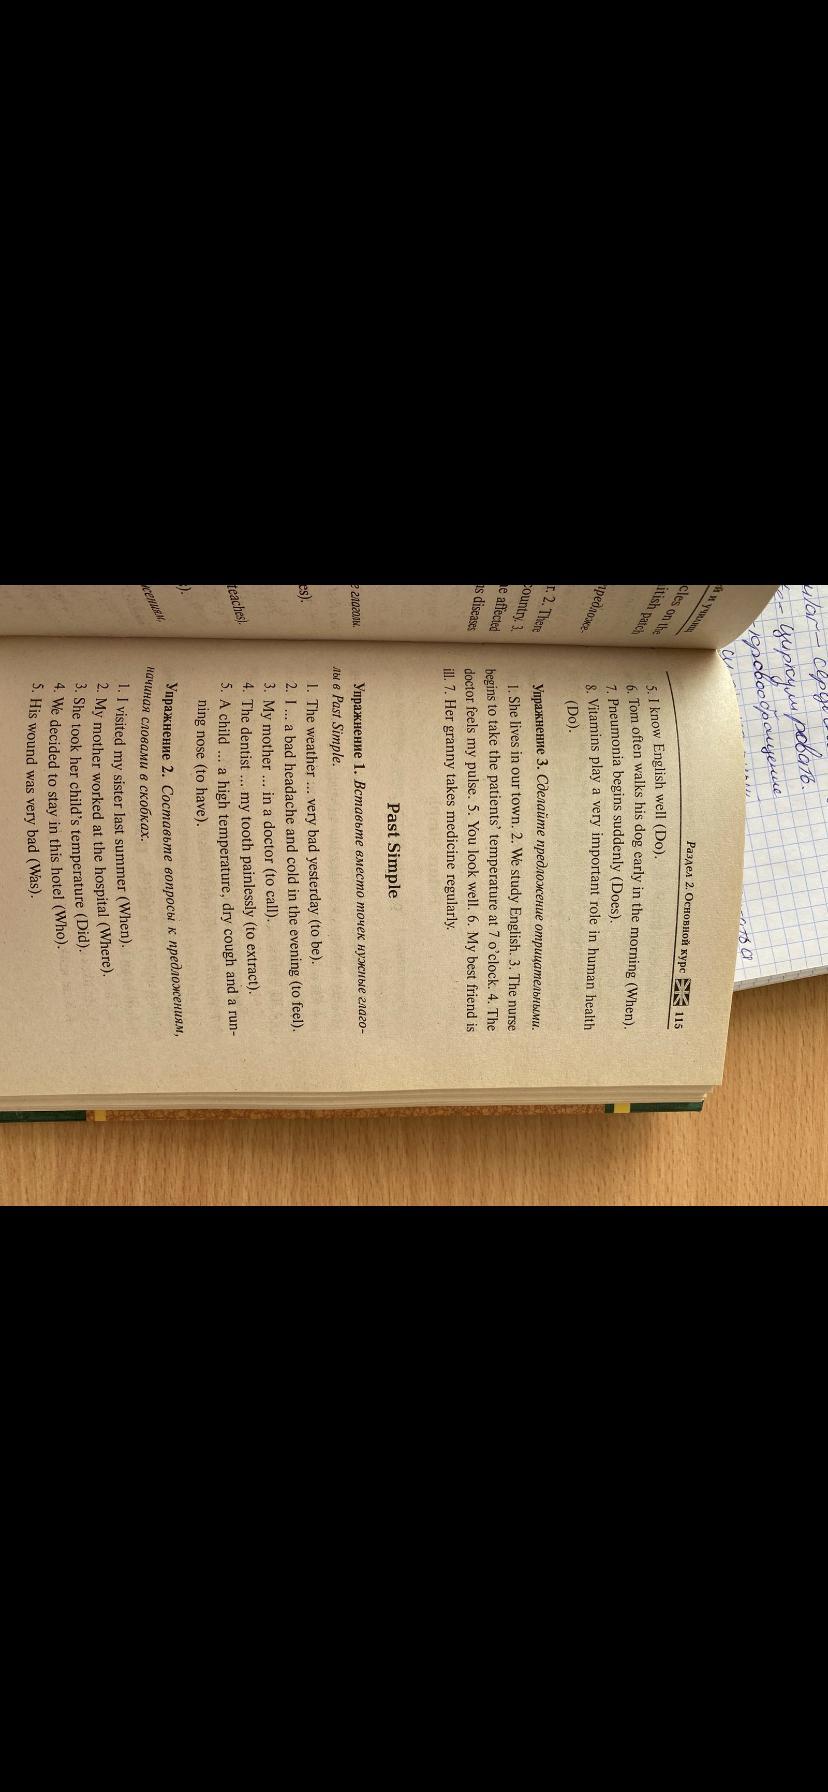 Раздел 2. Основной курс 115
5. I know English well (Do).
6. Tom often walks his dog early in the morning (When).
7. Pneumonia begins suddenly (Does).
8. Vitamins play a very important role in human health
(Do).
Упражнение 3. Сделайте предложение отрицательными.
1. She lives in our town. 2. We study English. 3. The nurse
begins to take the patients' temperature at 7 o'clock. 4. The
doctor feels my pulse. 5. You look well. 6. My best friend is
ill. 7. Her granny takes medicine regularly.
Past Simple
Упражнение 1. Вставьте вместо точек нужные глаго-
лы в Past Simple.
1. The weather ... very bad yesterday (to be).
2. I ... a bad headache and cold in the evening (to feel).
3. My mother ... in a doctor (to call).
4. The dentist ... my tooth painlessly (to extract).
5. A child ... a high temperature, dry cough and a run-
ning nose (to have).
Упражнение 2. Составьте вопросы к предложениям,
начиная словами в скобках.
1. I visited my sister last summer (When).
2. My mother worked at the hospital (Where).
3. She took her child's temperature (Did).
4. We decided to stay in this hotel (Who).
5. His wound was very bad (Was).
й и училищ
cles on the
itish patch
предложе-
r. 2. There
ountry. 3.
e affected
s diseases
е глаголы.
es).
teaches).
s).
жениям,
циркулировать
кровообращение